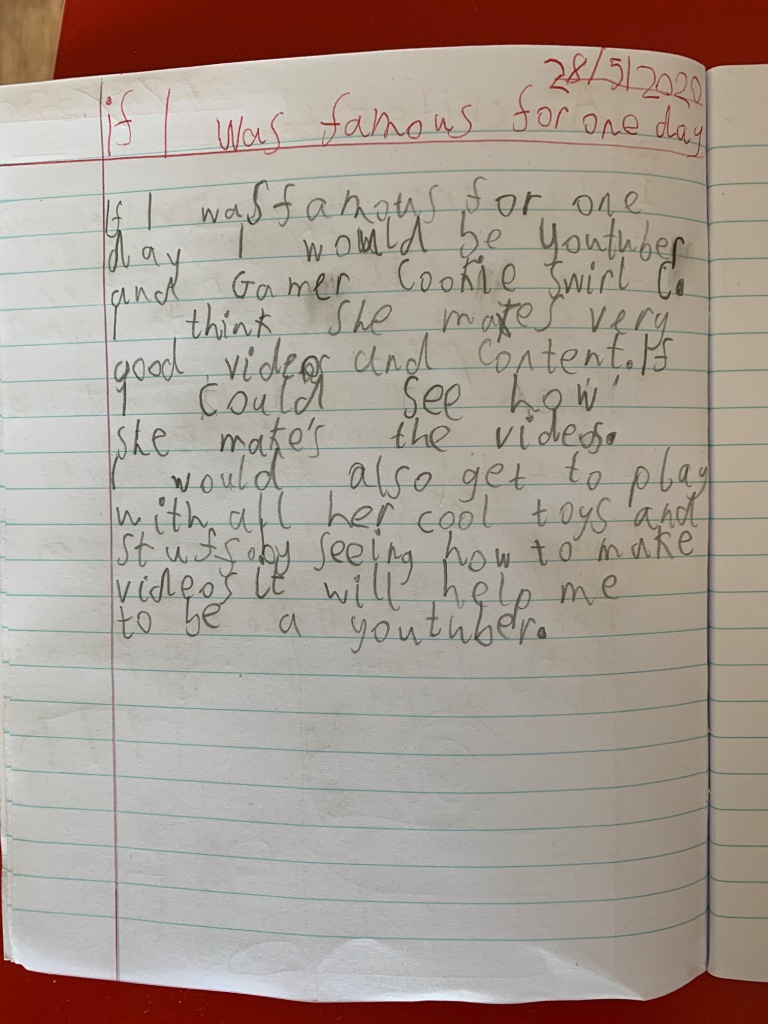 28/5/2020
if I was famous for one day
If I was famous for one
day I would be youtuber
and Gamer Cookie Swirl C.
I think she makes very
good videos and content. If
I could see how
she make's the videos.
I would also get to play
with all her cool toys and
stuf. by seeing how to make
videos it will help me
to be a youtuber.